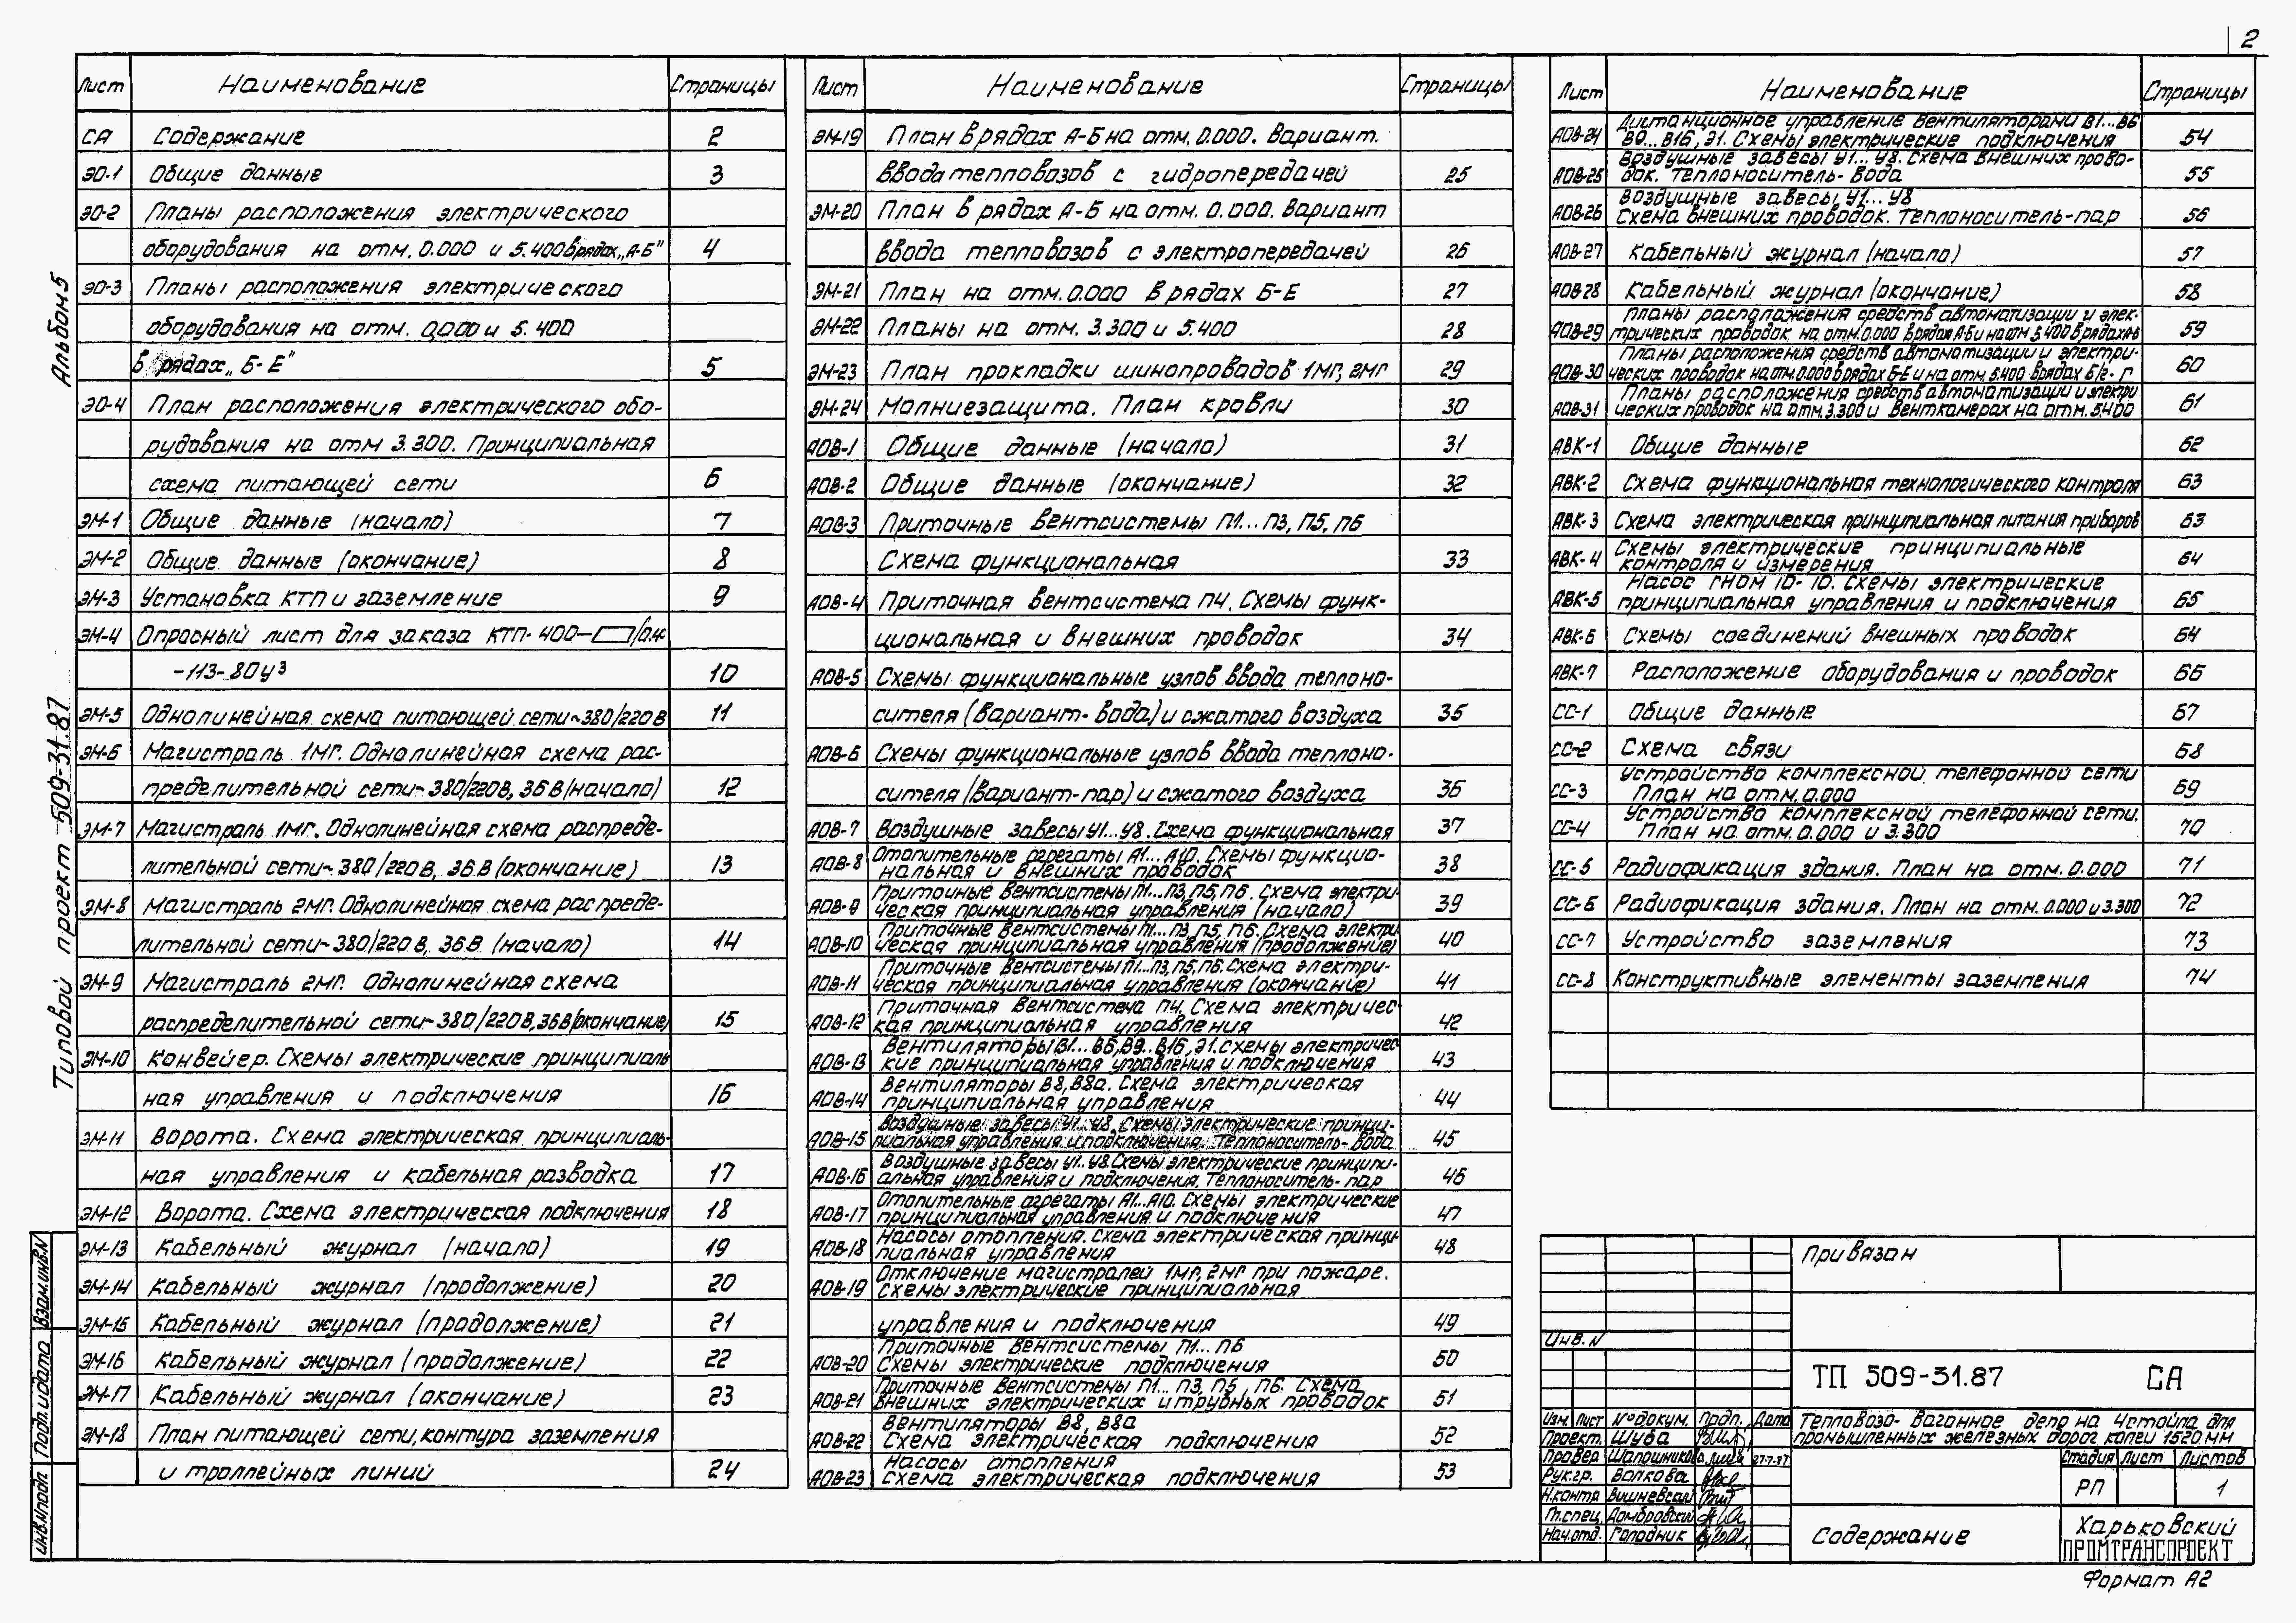 2
Альбом 5
Типовой проект 509-31.87
Взам.инв.N
Подп. и дата
Инв.Nподл
Лист Наименование Страницы
СА Содержание 2
ЭО-1 Общие данные 3
ЭО-2 Планы расположения электрического
оборудования на отм. 0.000 и 5.400 в рядах „А-Б" 4
ЭО-3 Планы расположения электрического
оборудования на отм. 0.000 и 5.400
в рядах „Б-Е" 5
ЭО-4 План расположения электрического обо-
рудования на отм 3.300. Принципиальная
схема питающей сети 6
ЭМ-1 Общие данные (начало) 7
ЭМ-2 Общие данные (окончание) 8
ЭМ-3 Установка КТП и заземление 9
ЭМ-4 Опросный лист для заказа КТП-400-▭/0.4
-113-80У3 10
ЭМ-5 Однолинейная схема питающей сети ~380/220 В 11
ЭМ-6 Магистраль 1МГ. Однолинейная схема рас-
пределительной сети ~380/220В, 36 В (начало) 12
ЭМ-7 Магистраль 1МГ. Однолинейная схема распреде-
лительной сети ~380/220 В, 36 В (окончание) 13
ЭМ-8 Магистраль 2МГ. Однолинейная схема распреде-
лительной сети ~380/220 В, 36 В (начало) 14
ЭМ-9 Магистраль 2МГ. Однолинейная схема
распределительной сети ~380/220 В, 36 В (окончание) 15
ЭМ-10 Конвейер. Схемы электрические принципиаль
ная управления и подключения 16
ЭМ-11 Ворота. Схема электрическая принципиаль-
ная управления и кабельная разводка 17
ЭМ-12 Ворота. Схема электрическая подключения 18
ЭМ-13 Кабельный журнал (начало) 19
ЭМ-14 Кабельный журнал (продолжение) 20
ЭМ-15 Кабельный журнал (продолжение) 21
ЭМ-16 Кабельный журнал (продолжение) 22
ЭМ-17 Кабельный журнал (окончание) 23
ЭМ-18 План питающей сети, контура заземления
и троллейных линий 24
Лист Наименование Страницы
ЭМ-19 План в рядах А-Б на отм. 0.000. Вариант.
ввода тепловозов с гидропередачей 25
ЭМ-20 План в рядах А-Б на отм. 0.000. Вариант
ввода тепловозов с электропередачей 26
ЭМ-21 План на отм. 0.000 в рядах Б-Е 27
ЭМ-22 Планы на отм. 3.300 и 5.400 28
ЭМ-23 План прокладки шинопроводов 1МГ, 2МГ 29
ЭМ-24 Молниезащита. План кровли 30
АОВ-1 Общие данные (начало) 31
АОВ-2 Общие данные (окончание) 32
АОВ-3 Приточные вентсистемы П1...П3, П5, П6
Схема функциональная 33
АОВ-4 Приточная вентсистема П4. Схемы функ-
циональная и внешних проводок 34
АОВ-5 Схемы функциональные узлов ввода теплоно-
сителя (вариант-вода) и сжатого воздуха 35
АОВ-6 Схемы функциональные узлов ввода теплоно-
сителя (вариант-пар) и сжатого воздуха 36
АОВ-7 Воздушные завесы У1...У8. Схема функциональная 37
АОВ-8 Отопительные агрегаты А1...А10. Схемы функцио-
нальная и внешних проводок 38
АОВ-9 Приточные вентсистемы П1...П3, П5, П6. Схема электри-
ческая принципиальная управления (начало) 39
АОВ-10 Приточные вентсистемы П1...П3, П5, П6. Схема электри
ческая принципиальная управления (продолжение) 40
АОВ-11 Приточные вентсистемы П1...П3, П5, П6. Схема электри-
ческая принципиальная управления (окончание) 41
АОВ-12 Приточная вентсистема П4. Схема электричес-
кая принципиальная управления 42
АОВ-13 Вентиляторы В1...В6, В9...В16, Э1. Схемы электричес
кие принципиальная управления и подключения 43
АОВ-14 Вентиляторы В8, В8а. Схема электрическая
принципиальная управления 44
АОВ-15 Воздушные завесы У1...У8. Схемы электрические принци-
пиальная управления и подключения. Теплоноситель-вода 45
АОВ-16 Воздушные завесы У1...У8. Схемы электрические принципи-
альная управления и подключения. Теплоноситель-пар 46
АОВ-17 Отопительные агрегаты А1...А10. Схемы электрические
принципиальная управления и подключения 47
АОВ-18 Насосы отопления. Схема электрическая принци
пиальная управления 48
АОВ-19 Отключение магистралей 1МГ, 2МГ при пожаре.
Схемы электрические принципиальная
управления и подключения 49
АОВ-20 Приточные вентсистемы П1...П6
Схемы электрические подключения 50
АОВ-21 Приточные вентсистемы П1...П3, П5, П6. Схема
внешних электрических и трубных проводок 51
АОВ-22 Вентиляторы В8, В8а
Схема электрическая подключения 52
АОВ-23 Насосы отопления
Схема электрическая подключения 53
Лист Наименование Страницы
АОВ-24 Дистанционное управление вентиляторами В1...В6
В9...В16, Э1. Схемы электрические подключения 54
АОВ-25 Воздушные завесы У1...У8. Схема внешних прово-
док. Теплоноситель-вода 55
АОВ-26 Воздушные завесы У1...У8
Схема внешних проводок. Теплоноситель-пар 56
АОВ-27 Кабельный журнал (начало) 57
АОВ-28 Кабельный журнал (окончание) 58
АОВ-29 Планы расположения средств автоматизации и элек-
трических проводок на отм. 0.000 в рядах А-Б и на отм 5.400 в рядах А-Б 59
АОВ-30 Планы расположения средств автоматизации и электри-
ческих проводок на отм. 0.000 в рядах Б-Е и на отм. 5.400 в рядах Б/2-Г 60
АОВ-31 Планы расположения средств автоматизации и электри
ческих проводок на отм. 3.300 и венткамерах на отм. 5.400 61
АВК-1 Общие данные 62
АВК-2 Схема функциональная технологического контроля 63
АВК-3 Схема электрическая принципиальная питания приборов 63
АВК-4 Схемы электрические принципиальные
контроля и измерения 64
АВК-5 Насос ГНОМ 10-10. Схемы электрические
принципиальная управления и подключения 65
АВК-6 Схемы соединений внешних проводок 64
АВК-7 Расположение оборудования и проводок 66
СС-1 Общие данные 67
СС-2 Схема связи 68
СС-3 Устройство комплексной телефонной сети
План на отм. 0.000 69
СС-4 Устройство комплексной телефонной сети.
План на отм. 0.000 и 3.300 70
СС-5 Радиофикация здания. План на отм. 0.000 71
СС-6 Радиофикация здания. План на отм. 0.000 и 3.300 72
СС-7 Устройство заземления 73
СС-8 Конструктивные элементы заземления 74
Привязан
Инв. N
ТП 509-31.87 СА
Изм. Лист № докум. Подп. Дата
Проект. Шуба
Провер Шапошникова 27.7.87
Рук.гр. Волкова
Н.контр Вишневский
Гл.спец. Домбровский
Нач.отд. Голодник
Тепловозо-вагонное депо на 4 стойла для
промышленных железных дорог колеи 1520 мм
Стадия Лист Листов
РП 1
Содержание
Харьковский
ПРОМТРАНСПРОЕКТ
Формат А2